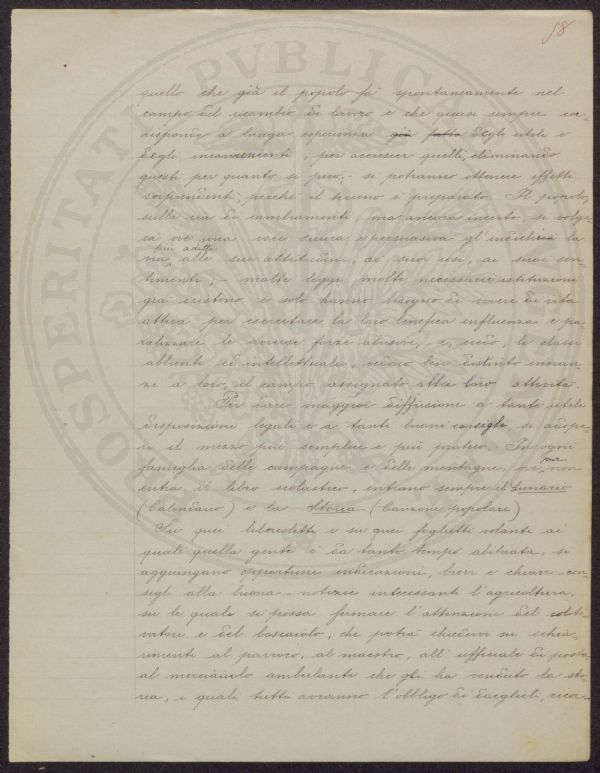 58
quello che già il popolo fa spontaneamente nel
campo del scambio di lavoro e che quasi sempre cor-
risponde a lunga esperienza già fatta degli utili e
degli inconvenienti, per accrescer quelli, eliminando
questi per quanto si può, - si potranno ottenere effetti
sorprendenti, perché il terreno è preparato. Il popolo,
sulla via di cambiamenti, ma ancora incerto, si volge-
rà ove una voce sicura e persuasiva gl'indichi la
via più adatta alle sue attitudini, ai suoi usi, ai suoi sen-
timenti; - molte leggi, molte necessarie istituzioni
già esistono e solo hanno bisogno di vivere di vita
attiva per esercitare la loro benefica influenza e pa-
ralizzare le avverse forze abusive, e, credo, le classi
abbienti ed intellettuali, vedono ben distinto innan-
zi a loro, il campo assegnato alla loro attività.
Per dare maggior diffusione a tante utili
disposizioni legali e a tanti buoni consigli si adope-
ri il mezzo più semplice e più pratico. In ogni
famiglia delle campagne e delle montagne, ove pur non
entra il libro scolastico, entrano sempre il Lunario
(Calendario) e la Storia (Canzone popolare)
Su quei libercoletti e su quei foglietti volanti ai
quali quella gente è da tanto tempo abituata, si
aggiungano opportune indicazioni, brevi e chiare - con-
sigli alla buona - notizie interessanti l'agricoltura,
su le quali si possa fermare l'attenzione del colti-
vatore e del boscaiolo, che potrà chiedere su schia-
rimenti al parroco, al maestro, all'ufficiale di posta
al merciaiolo ambulante che gli ha venduto la sto-
ria, i quali tutti avranno l'obbligo di darglieli, ricor-
PROSPERITATI PVBLICAE